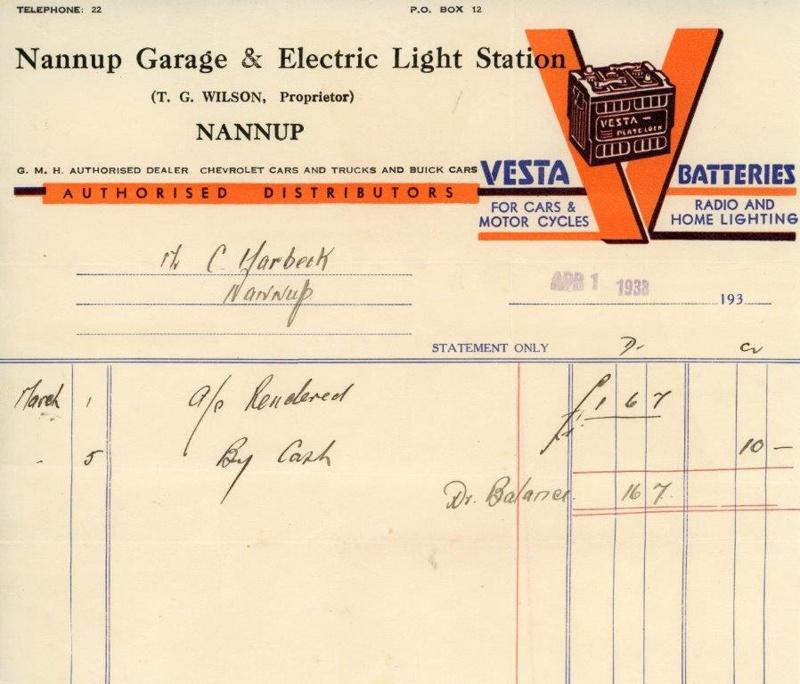 TELEPHONE: 22 P.O. BOX 12
Nannup Garage & Electric Light Station
(T. G. WILSON, Proprietor)
NANNUP
G. M. H. AUTHORISED DEALER CHEVROLET CARS AND TRUCKS AND BUICK CARS
AUTHORISED DISTRIBUTORS
VESTA
PLATE LOCK
VESTA BATTERIES
FOR CARS & MOTOR CYCLES
RADIO AND HOME LIGHTING
C. Harbeck
Nannup
APR 1 1938 193
STATEMENT ONLY Dr Cr
March 1 a/c Rendered £ 1 6 7
- 5 By Cash 10 -
Dr. Balance. 16 7.